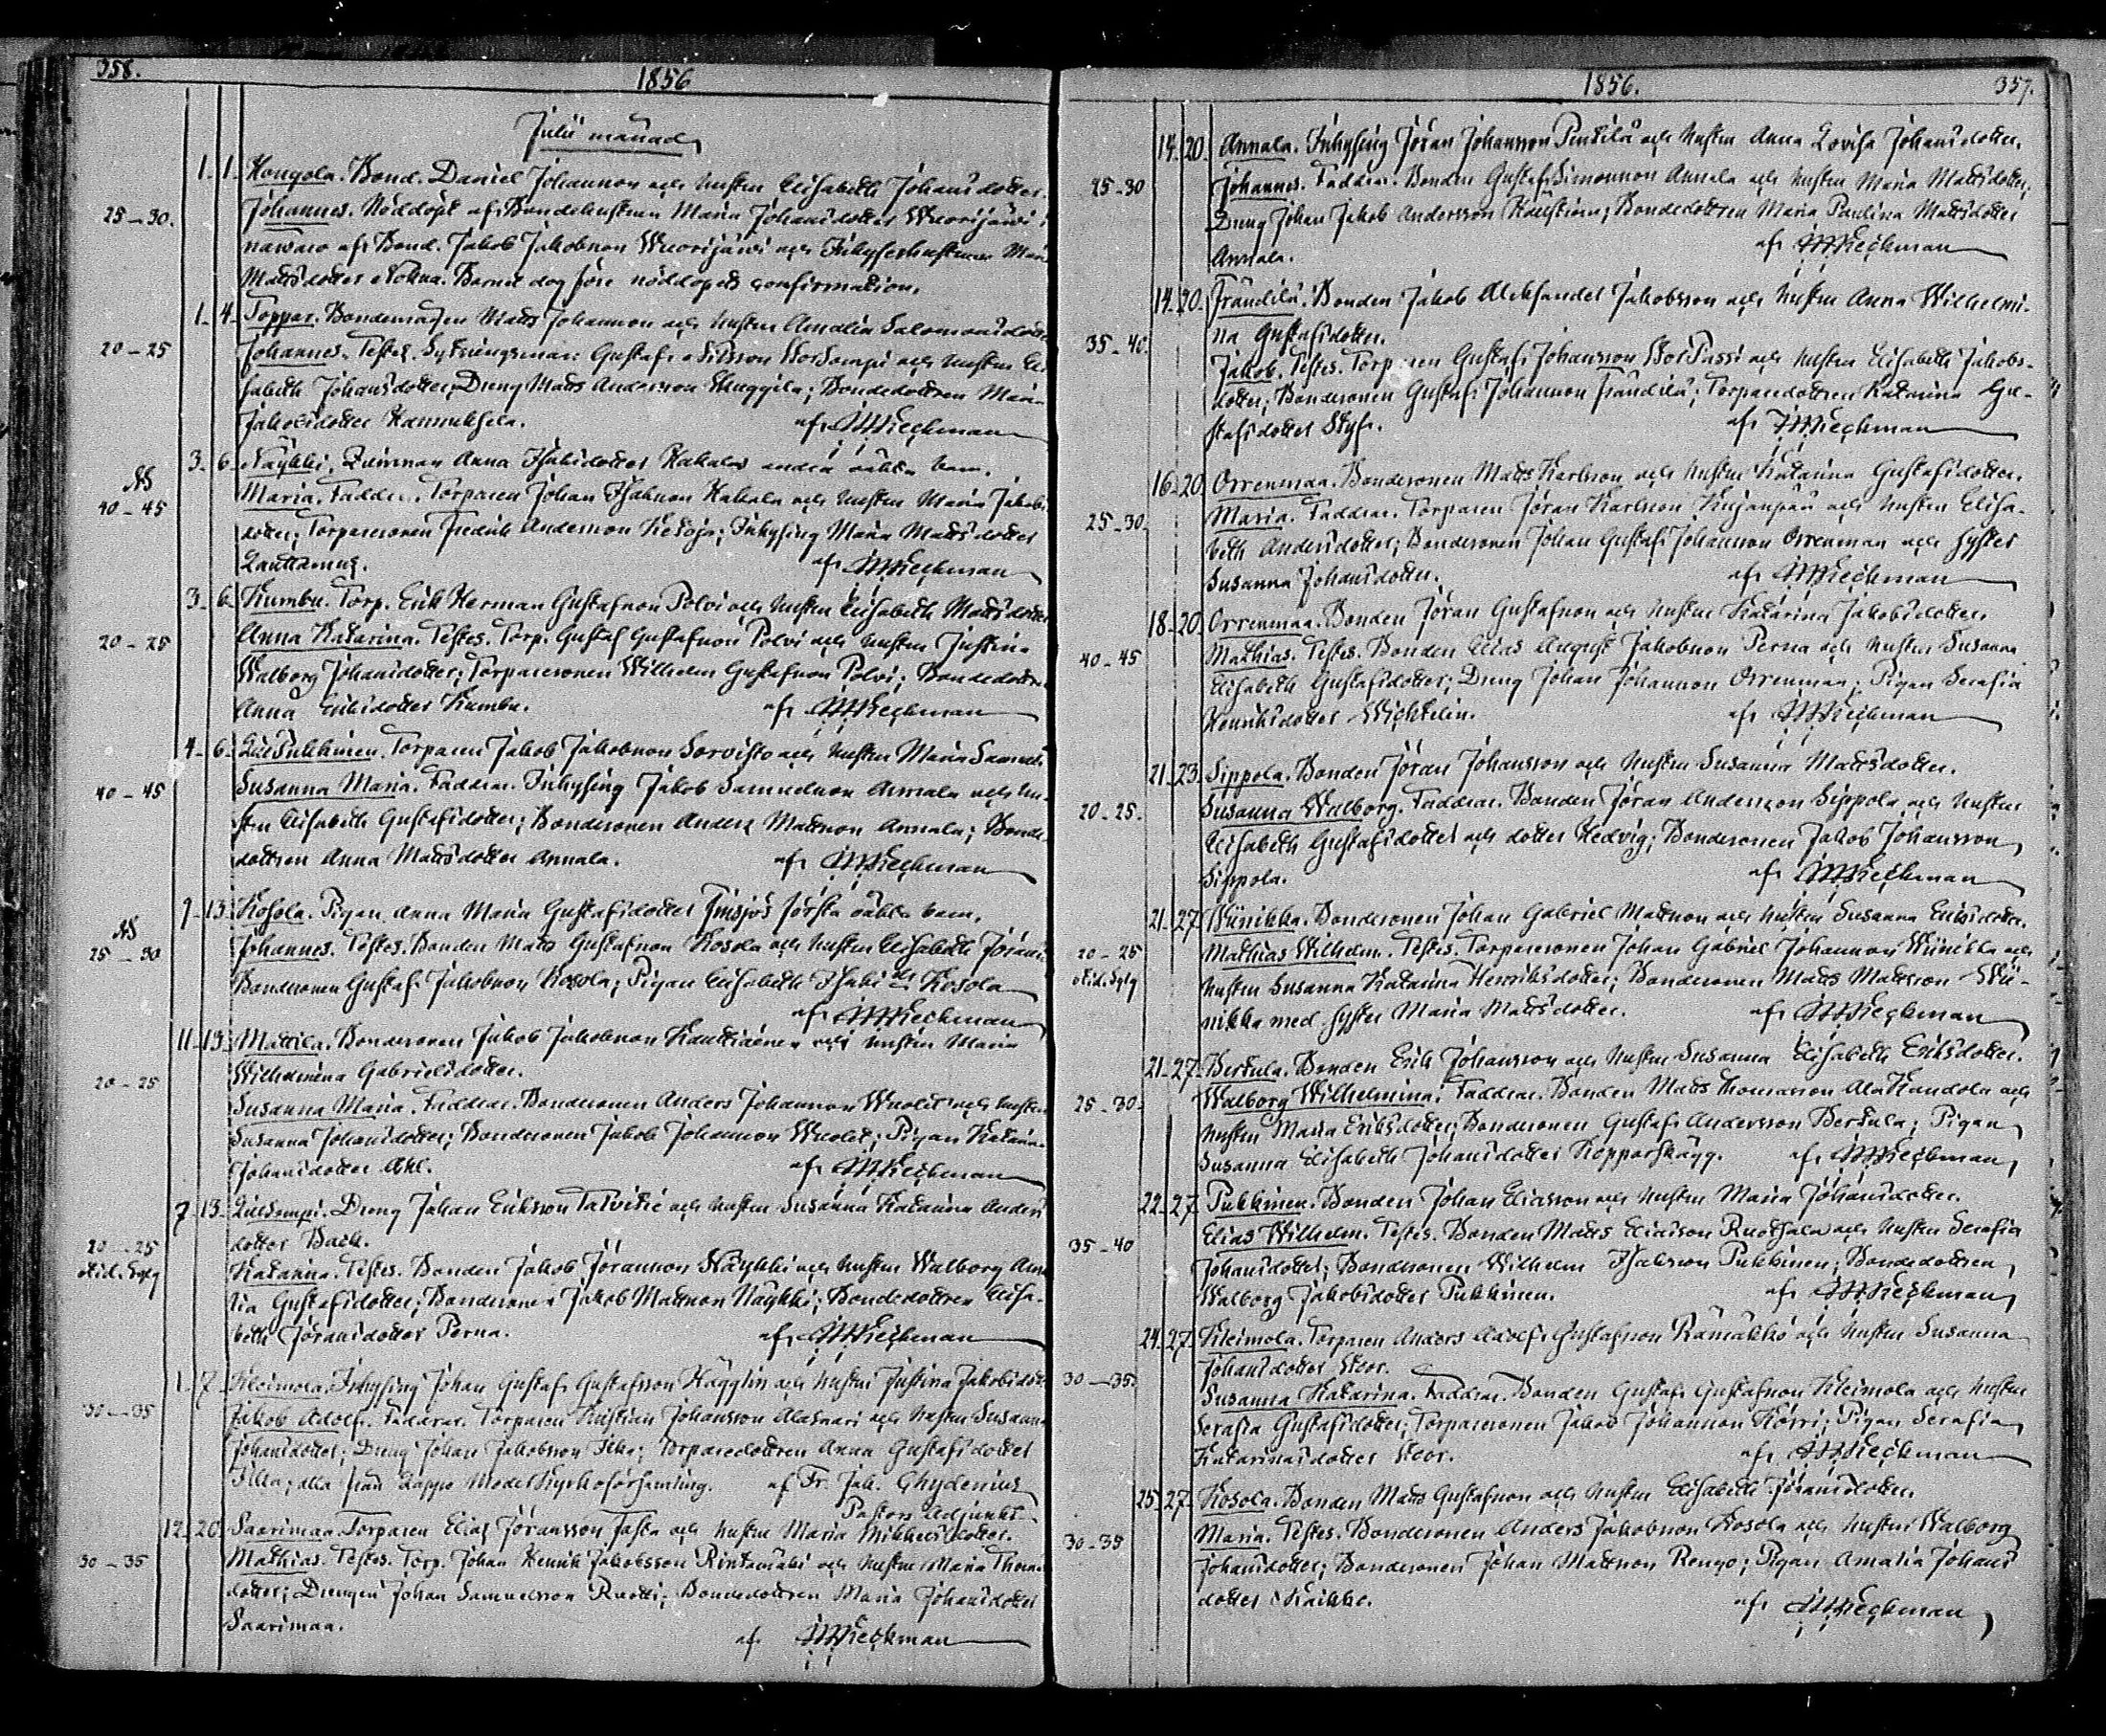 358.
1856
Julii månad
1. 1. Hongola. Bond. Daniel Johansson och hustru Elisabeth Johansdotter.
25-30. Johannes. Nöddöpt af Bondehustrun Maria Johansdotter Wuorijärvi i
närwaro af Bond. Jakob Jakobsson Wuorijärvi och Inhyseshustrun Mar
Mattsdotter Nohna. Barnet dog före nöddopets confirmation.
1. 4. Toppar. Bondemågen Matts Johansson och hustru Amalia Salomonsdotter
20-25 Johannes. Testes. Sytningsman Gustaf Nilsson StorSompi och hustru Eli
sabeth Johansdotter; Dreng Matts Andersson Skuggila; Bondedottren Maria
Jakobsdotter Hannuksela. af JMKeckman
3. 6. Näykki. Qvinnan Anna Isaksdotter Kakalas andra oäkta barn.
AS
40-45 Maria. Faddrar. Torparen Johan Isaksson Kakala och hustru Maria Jakobs
dotter; Torparesonen Fredrik Andersson Ketoja; Inhysing Maria Mattsdotter
Lauttamus. af JMKeckman
3. 6. Kumbu. Torp. Erik Herman Gustafsson Polvi och hustru Elisabeth Mattsdotter
20-25 Anna Katarina. Testes. Torp. Gustaf Gustafsson Polvi och hustru Justina
Walborg Johansdotter; Torparesonen Wilhelm Gustafsson Polvi; Bondedottren
Anna Eriksdotter Kumbu. af JMKeckman
4. 6. LillPukkinen. Torparen Jakob Jakobsson Sorvisto och hustru Maria Samuels
40-45 Susanna Maria. Faddrar. Inhysing Jakob Samuelsson Annala och hu-
stru Elisabeth Gustafsdotter; Bondesonen Anders Mattsson Annala; Bonde
dottren Anna Mattsdotter Annala. af JMKeckman
9. 13. Kosola. Pigan Anna Maria Gustafsdotter första oäkta barn.
AS
25-30 Johannes. Testes. Bonden Matts Gustafsson Kosola och hustru Elisabeth Jörans
Bondesonen Gustaf Jakobsson Kosola; Pigan Elisabeth Isaksdr Kosola
af JMKeckman
11. 13. Mattila. Bondesonen Jakob Jakobsson Kauttiainen och hustru Maria
20-25 Wilhelmina Gabrielsdotter.
Susanna Maria. Faddrar. Bondesonen Anders Johansson Wuolet och hustru
Susanna Johansdotter; Bondesonen Jakob Johansson Wuolet; Pigan Katarina
Johansdotter Ahl. af JMKeckman
7. 13. LillSompi. Dreng Johan Eriksson Talvitie och hustru Susanna Katarina Anders
dotter Back.
20-25 Katarina. Testes. Bonden Jakob Jöransson Näykki och hustru Walborg Ama
lia Gustafsdotter; Bondesonen Jakob Mattsson Näykki; Bondedottren Elisa-
beth Jöransdotter Perna. af JMKeckman
1. 7. Kleimola. Inhysing Johan Gustaf Gustafsson Hägglin och hustru Justina Jakobsdr.
30-35 Jakob Adolf. Faddrar. Torparen Kristian Johansson Alasaari och hustru Susanna
Johansdotter; Dreng Johan Jakobsson Filla; Torparedottren Anna Gustafsdotter
Filla; alla från Lappo Moderkyrkoförsamling. af Fr. Jak. Chydenius
Pastors Adjunkt
12. 20. Saarimaa. Torparen Elias Jöransson Fasta och hustru Maria Mikkelsdotter.
30-35 Mathias. Testes. Torp. Johan Henrik Jakobsson Rintamäki och hustru Maria Thoms
dotter; Drengen Johan Samuelsson Ruotti; Bondedottren Maria Johansdotter
Saarimaa. af JMKeckman
1856. 357.
14. 20. Annala. Inhysing Jöran Johansson Pentilä och hustru Anna Lovisa Johansdotter.
45-30 Johannes. Faddrar. Bonden Gustaf Simonsson Annala och hustru Maria Mattsdotter;
Dreng Johan Jakob Andersson Kaustinen; Bondedottren Maria Paulina Mattsdotter
Annala. af JMKeckman
14. 20. Frändilä. Bonden Jakob Aleksander Jakobsson och hustru Anna Wilhelmi-
na Gustafsdotter.
35-40. Jakob. Testes. Torparen Gustaf Johansson StorPassi och hustru Elisabeth Jakobs-
dotter; Bondesonen Gustaf Johansson Frändilä; Torparedottren Katarina Gu-
stafsdotter Styf. af JMKeckman
16. 20 Orrenmaa. Bondesonen Matts Karlsson och hustru Katarina Gustafsdotter.
25-30. Maria. Faddrar. Torparen Jöran Karlsson Kujanpää och hustru Elisa-
beth Andersdotter; Bondesonen Johan Gustaf Johansson Orrenmaa och syster
Susanna Johansdotter. af JMKeckman
18. 20. Orrenmaa. Bonden Jöran Gustafsson och hustru Katarina Jakobsdotter.
40-45 Mathias. Testes. Bonden Elias August Jakobsson Perna och hustru Susanna
Elisabeth Gustafsdotter; Dreng Johan Johansson Orrenmaa; Pigan Serafia
Henriksdotter Wichtelin. af JMKeckman
21. 23. Sippola. Bonden Jöran Johansson och hustru Susanna Mattsdotter.
20-25. Susanna Walborg. Faddrar. Bonden Jöran Andersson Sippola och hustru
Elisabeth Gustafsdotter och dotter Hedvig; Bondesonen Jakob Johansson
Sippola. af JMKeckman
21. 27. Wiinikka. Bondesonen Johan Gabriel Mattsson och hustru Susanna Eriksdotter.
20-25 Mathias Wilhelm. Testes. Torparesonen Johan Gabriel Johansson Wiinikka och
hustru Susanna Katarina Henriksdotter; Bondesonen Matts Mattsson Wii-
nikka med syster Maria Mattsdotter. af JMKeckman
21. 27. Bertula. Bonden Erik Johansson och hustru Susanna Elisabeth Eriksdotter.
25-30. Walborg Wilhelmina. Faddrar. Bonden Matts Thomasson AlaKandola och
hustru Maria Eriksdotter; Bondesonen Gustaf Andersson Bertula; Pigan
Susanna Elisabeth Johansdotter Kopparskägg. af JMKeckman
22. 27. Pukkinen. Bonden Johan Eliasson och hustru Maria Johansdotter.
35-40 Elias Wilhelm. Testes. Bonden Matts Eliasson Ruothala och hustru Serafia
Johansdotter; Bondesonen Wilhelm Isaksson Pukkinen; Bondedottren
Walborg Jakobsdotter Pukkinen. af JMKeckman
24. 27. Kleimola. Torparen Anders Adolf Gustafsson Rämäkkö och hustru Susanna
Johansdotter Stor.
30-35. Susanna Katarina. Faddrar. Bonden Gustaf Gustafsson Kleimola och hustru
Serafia Gustafsdotter; Torparesonen Jakob Johansson Körri; Pigan Serafia
Katarinasdotter Stor. af JMKeckman
25. 27. Kosola. Bonden Matts Gustafsson och hustru Elisabeth Jöransdotter.
30-35 Maria. Testes. Bondesonen Anders Jakobsson Kosola och hustru Walborg
Johansdotter; Bondesonen Johan Mattsson Rengo; Pigan Amalia Johans
dotter Kaikko. af JMKeckman